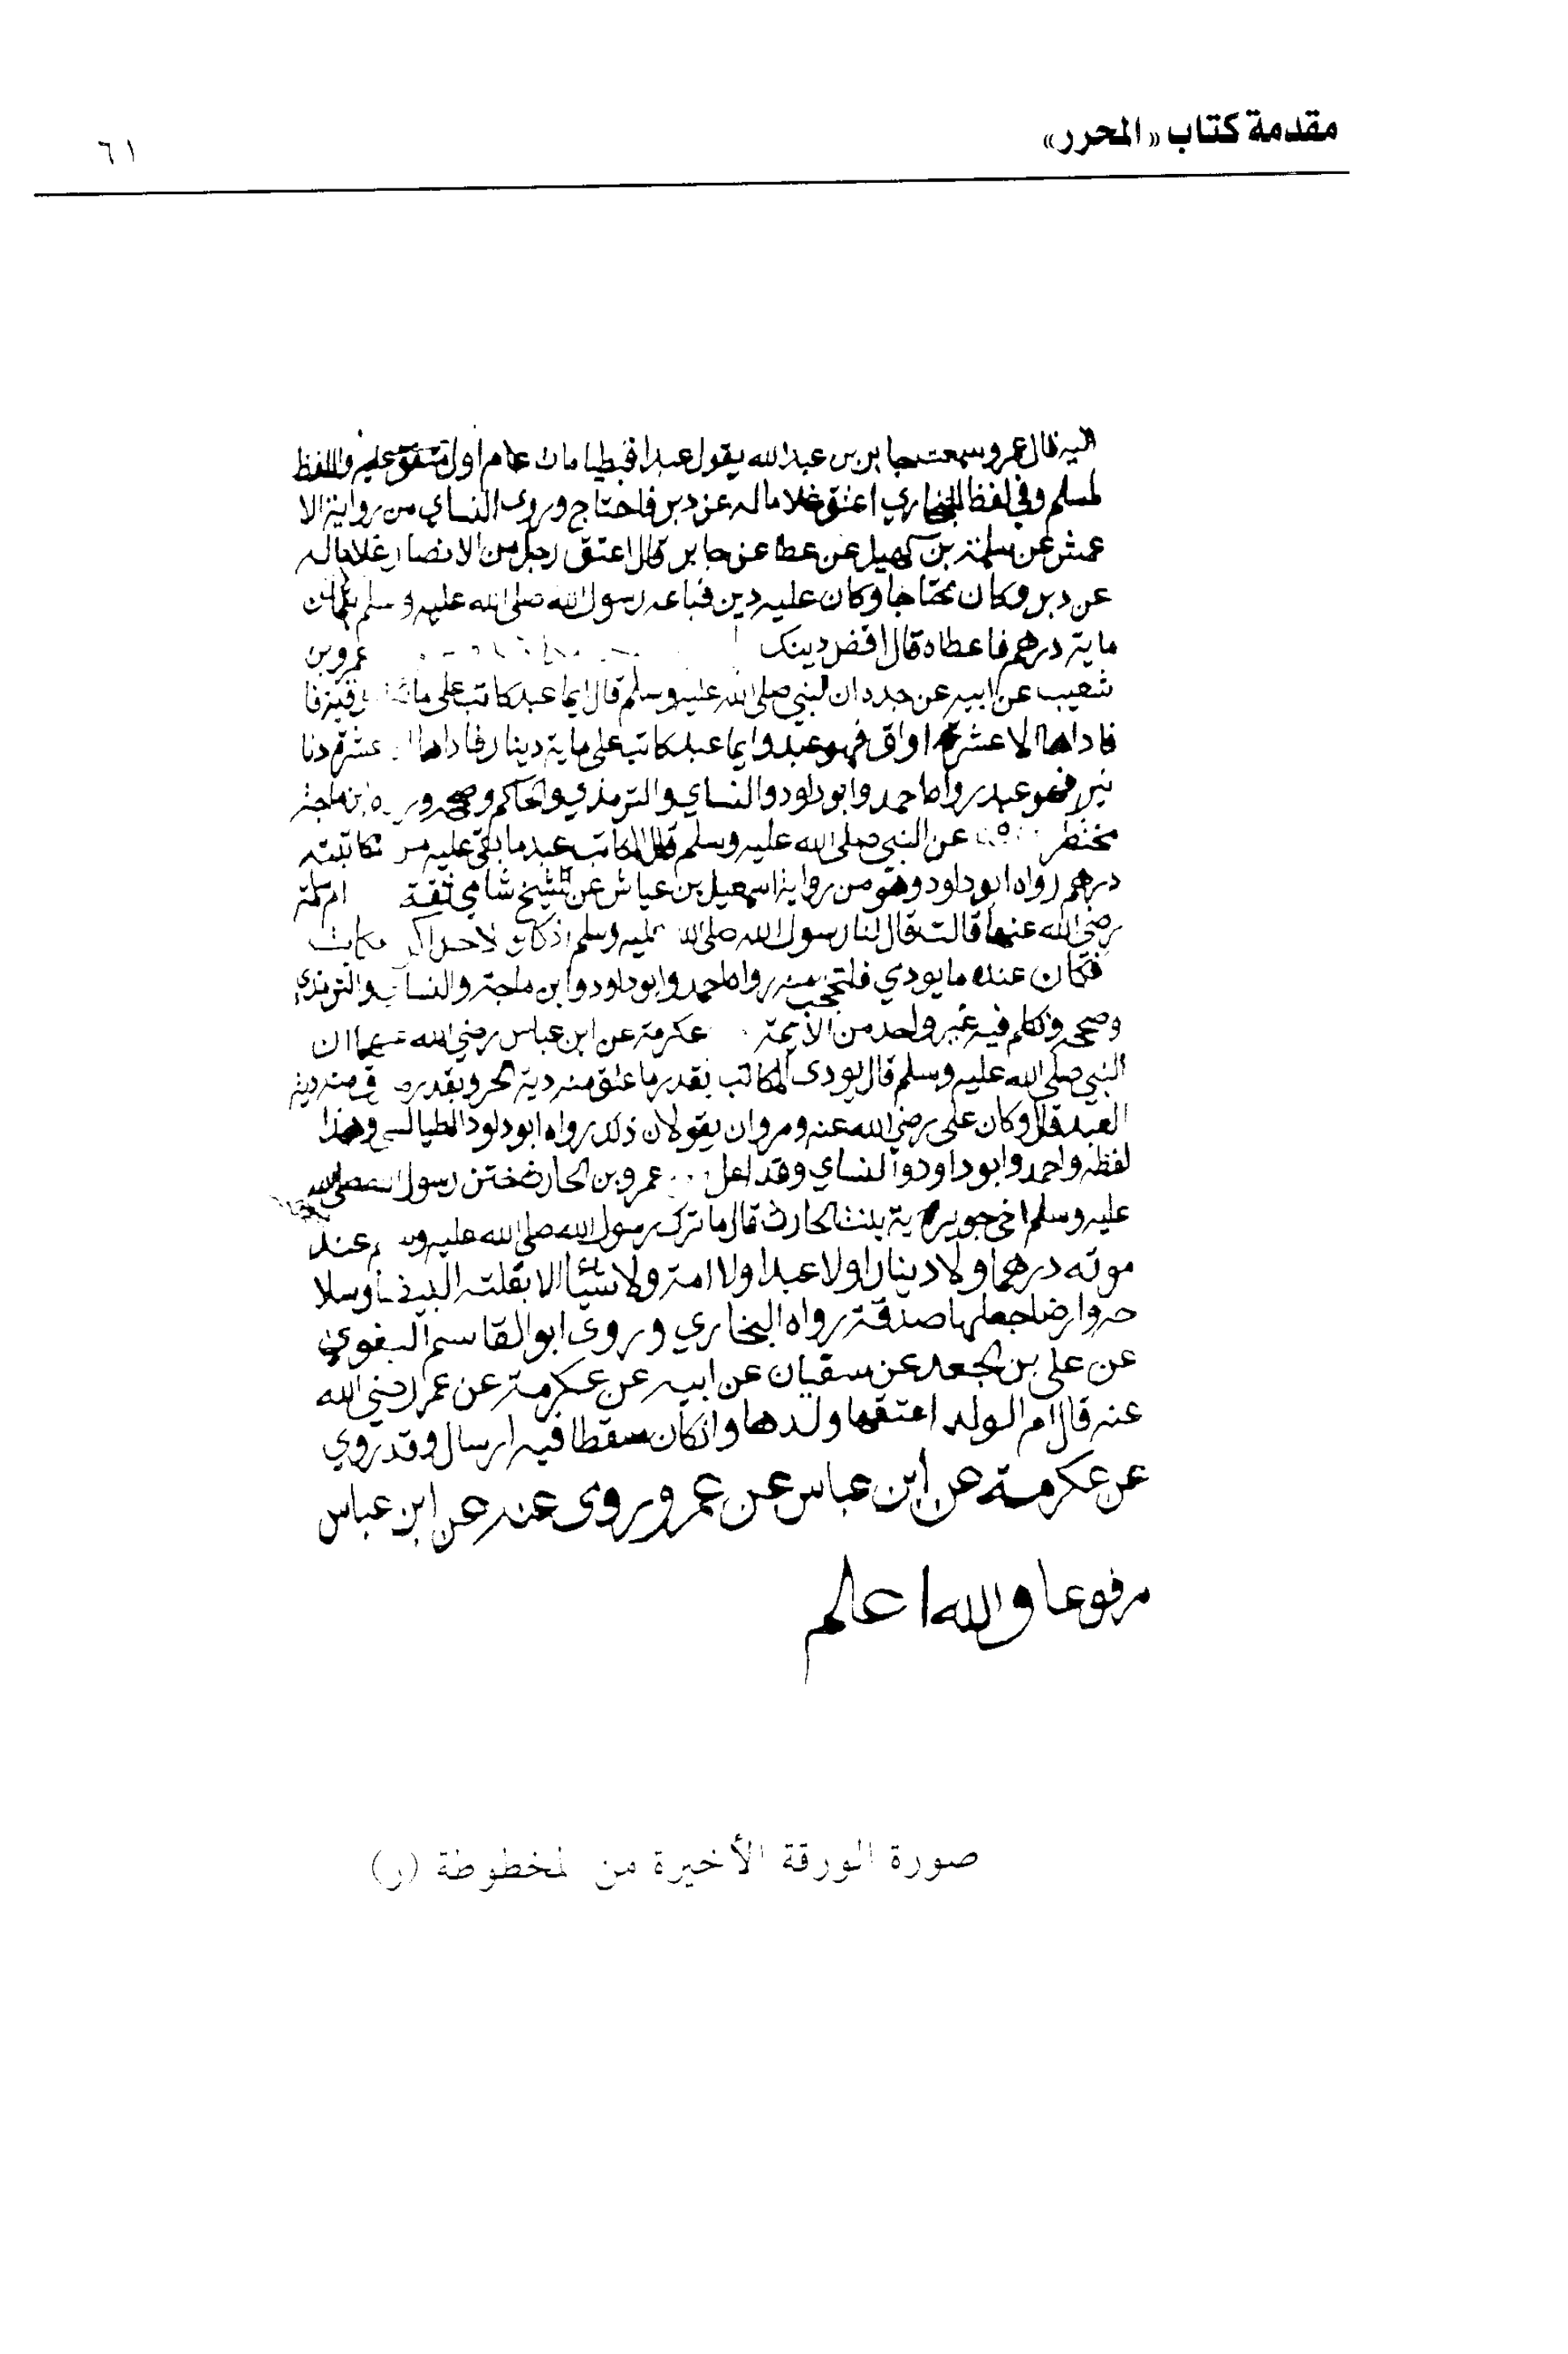 مقدمة كتاب «المحرر»
٦١
اليه قال عمرو سمعت جابر بن عبد الله يقول عبدا قبطيا مات عام اول متفق عليه واللفظ
لمسلم وفي لفظ للبخاري اعتق غلاما له عن دبر فاحتاج وروى النساي من رواية الا
عمش عن سلمة بن كهيل عن عطا عن جابر قال اعتق رجل من الانصار غلاما له
عن دبر وكان محتاجا وكان عليه دين فباعه رسول الله صلى الله عليه وسلم بثمان
ماية درهم فاعطاه قال اقض دينك عمرو بن
شعيب عن ابيه عن جده ان النبي صلى الله عليه وسلم قال ايما عبد كاتب على
فاداها الا عشرة اواق فهو عبد وايما عبد كاتب على ماية دينار فاداها عشرة دنا
نير فهو عبد رواه احمد وابو داود والنساي والترمذي والحاكم وصححه ابن ماجة
مختصر عن النبي صلى الله عليه وسلم قال المكاتب عبد ما بقي عليه من مكاتبته
درهم رواه ابو داود وهو من رواية اسمعيل بن عياش عن شيخ شامي ثقة ام سلمة
رضي الله عنها قالت قال لنا رسول الله صلى الله عليه وسلم اذ كان لاحداكن مكاتب
فكان عنده ما يودي فلتحتجب منه رواه احمد وابو داود وابن ماجة والنساي والترمذي
وصححه وتكلم فيه غير واحد من الايمة عكرمة عن ابن عباس رضي الله عنهما ان
النبي صلى الله عليه وسلم قال يودى المكاتب بقدر ما عتق منه دية الحر وبقدر منه دية
العبد قال وكان على رضي الله عنه ومروان يقولان ذلك رواه ابو داود الطيالسي وهذا
لفظه واحمد وابو داود والنساي وقد اعل عمرو بن الحارث ختن رسول الله صلى الله
عليه وسلم اخي جويرية بنت الحارث قال ما ترك رسول الله صلى الله عليه وسلم عند
موته درهما ولا دينارا ولا عبدا ولا امة ولا شيًا الا بغلته البيضا وسلا
حه وارضا جعلها صدقة رواه البخاري وروى ابو القاسم البغوي
عن علي بن الجعد عن سفيان عن ابيه عن عكرمة عن عمر رضي الله
عنه قال ام الولد اعتقها ولدها وان كان سقطا فيه ارسال وقد روي
عن عكرمة عن ابن عباس عن عمر وروى عنه عن ابن عباس
مرفوعا والله اعلم
صورة الورقة الأخيرة من المخطوطة (ر)